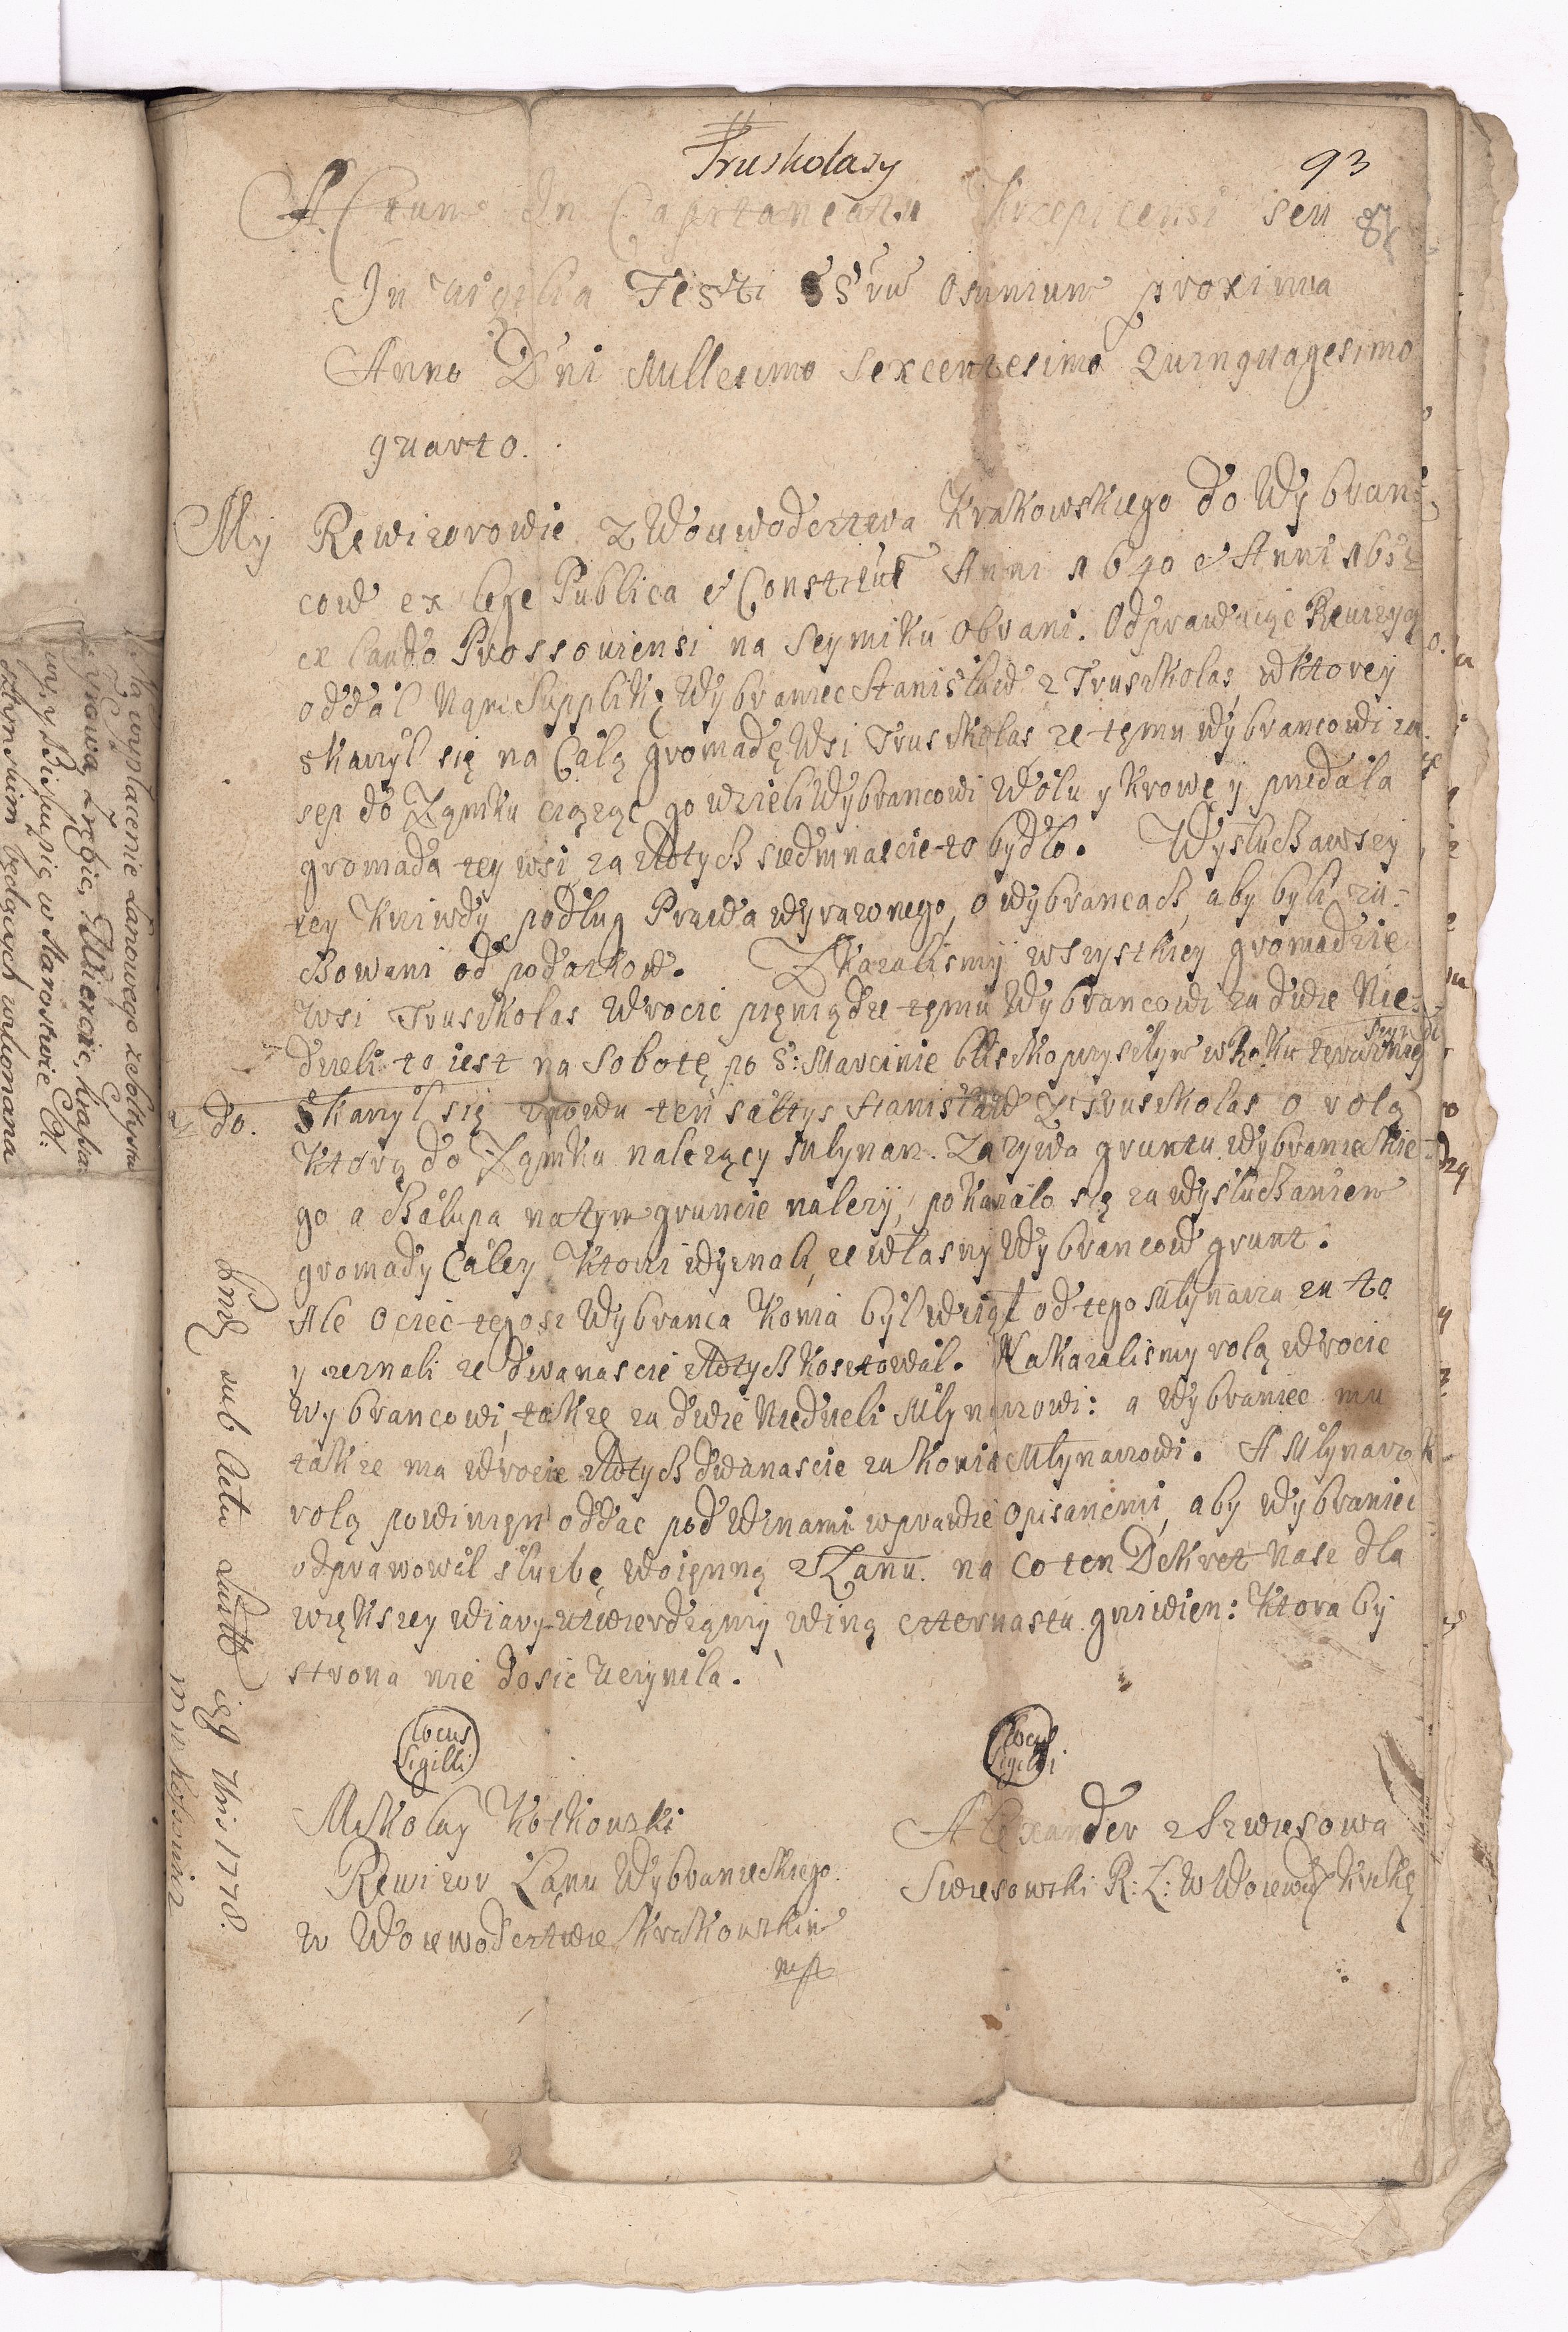 Truskolasy
93
Actum In Capitaneatu Krzepicensi seu
In Vigilia Festi SS'ru Omnium proxima
Anno D'ni Millesimo Sexcentesimo Quinquagesimo
quarto.
My Rewizorowie z Woiewodcztwa Krakowskiego do Wybran-
cow ex lege Publica et Constitut Anni 1640 et Anni 165
ex laudo Prossouiensi na Seymiku obrani. Odprawuiąc Rewizyą
oddał Nąm Supplikę Wybraniec Stanisław z Truskolas, w ktorey
skarzył się na Całą gromadę Wsi Truskolas ze tęmu wybrancowi za
sep do Ząmku ciązząc go wzieli Wybrancowi Wołu y Krowę y przedała
gromada tey wsi za złotych siedmnascie to bydło. Wysłuchawszy
tey Krziwdy podług Prawa wyrazonego, o wybrancach, aby byli za-
chowani od podatkow. Zkazalismy wszystkiey gromadzie
wsi Truskolas wrocic pięniądze tęmu Wybrancowi za dwie Nie-
dzieli to iest na Sobotę po S: Marcinie blisko przyszłym w Roku
do. Skarzył się znowu ten sałtys Stanisław z Truskolas o rolą
ktorą do Ząmku nalezący Młynarz. Zazywa gruntu wybranieckie-
go a Chałupa na tym gruncie nalezy, pokazało się za wysłuchaniem
gromady Całey ktorzi wyznali, ze własny Wybrancow grunt.
Ale Ociec tegosz Wybranca Konia był wziął od tego Młynarza za to
y zeznali ze dwanascie złotych kosztował. Nakazalismy rolą wrocic
wybrancowi, takze za dwie Niedzieli Młynarzowi: a Wybraniec mu
takze ma wrocic złotych dwanascie za Konia Młynarzowi. A Młynarz
rolą powinięn oddac pod Winami w prawie opisanemi, aby wybraniec
odprawował słuzbę woięnną z Łanu. na co ten Dekret Nasz dla
większey wiary utwierdząmy winą czternastu grziwien: Ktora by
strona nie dosic uczyniła.
Locus
Sigilli
Locus
Sigilli
Mikołay Kotkowski
Rewizor Łanu Wybranieckiego
w Woiewodcztwie Krakowskim
mp
Alexander z Szwiesowa
Swiesowski R: Ł: W Woiewod Krakę
sub Actu 7bris 1778.